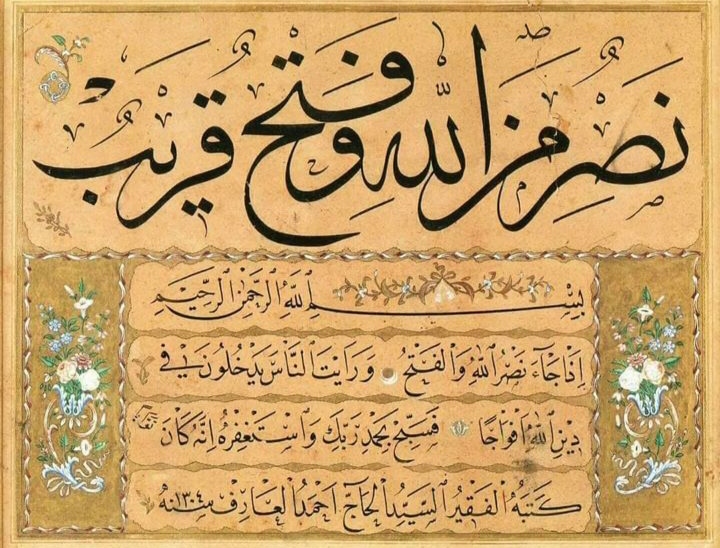 نَصْرٌ مِنَ اللّٰهِ وَفَتْحٌ قَرِيبٌ
بِسْمِ ٱللّٰهِ ٱلرَّحْمٰنِ ٱلرَّحِيمِ
اِذَا جَاءَ نَصْرُ ٱللّٰهِ وَٱلْفَتْحُ وَرَاَيْتَ ٱلنَّاسَ يَدْخُلُونَ فِي
دِينِ ٱللّٰهِ اَفْوَاجًا فَسَبِّحْ بِحَمْدِ رَبِّكَ وَٱسْتَغْفِرْهُ اِنَّهُ كَانَ
كَتَبَهُ ٱلْفَقِيرُ ٱلسَّيِّدُ ٱلْحَاجّ اَحْمَدُ ٱلْعَارِفْ سنه ١٣٠٤